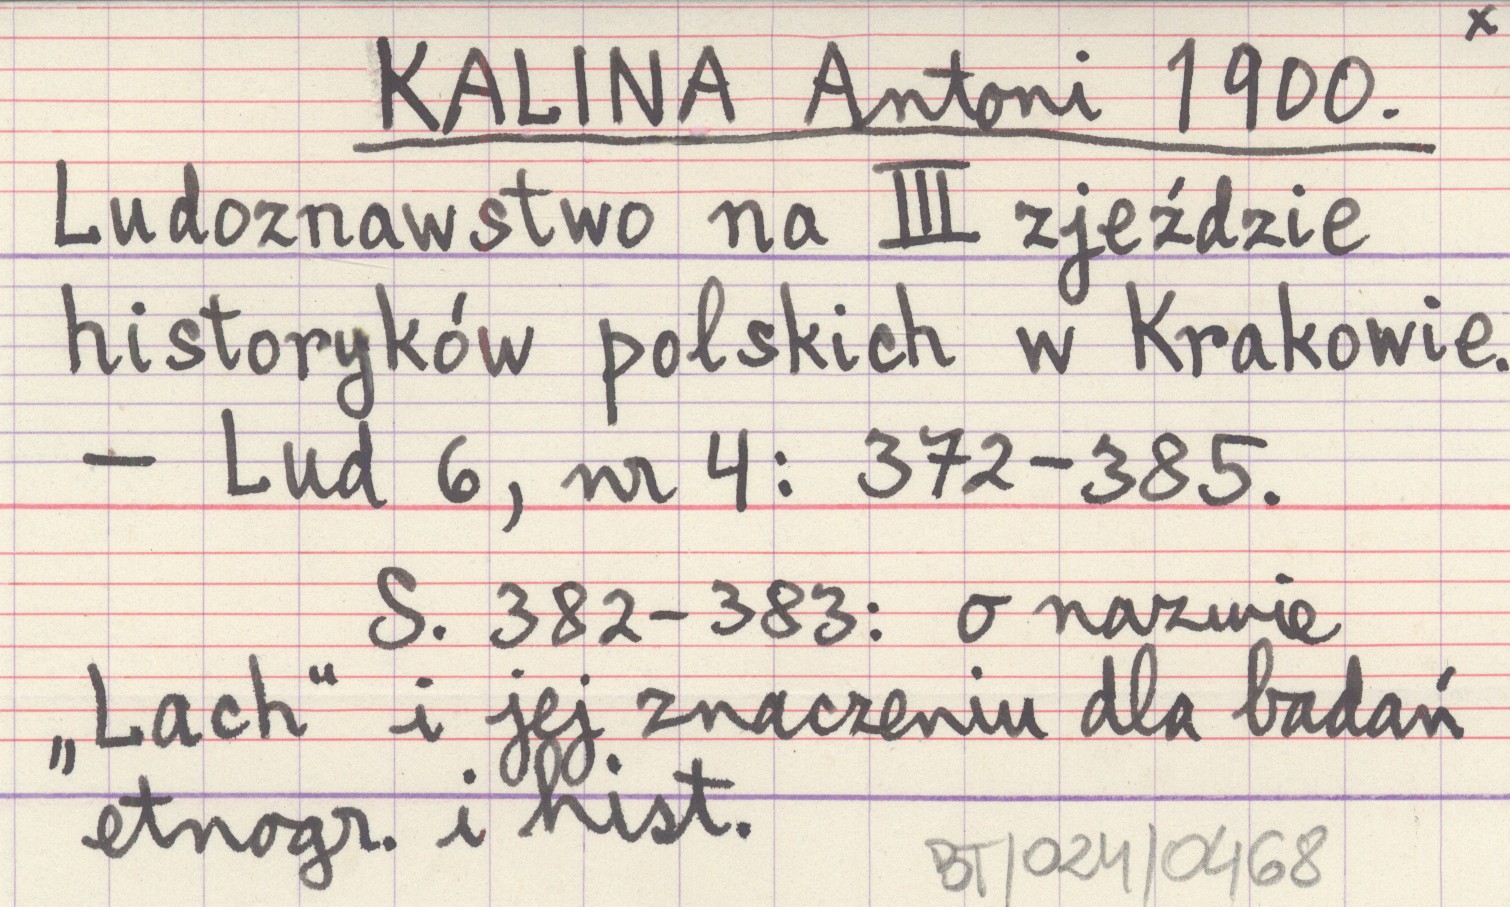 x
KALINA Antoni 1900.
Ludoznawstwo na III zjeździe
historyków polskich w Krakowie.
— Lud 6, nr 4: 372-385.
S. 382-383: o nazwie
„Lach“ i jej znaczeniu dla badań
etnogr. i hist.
BT/024/0468